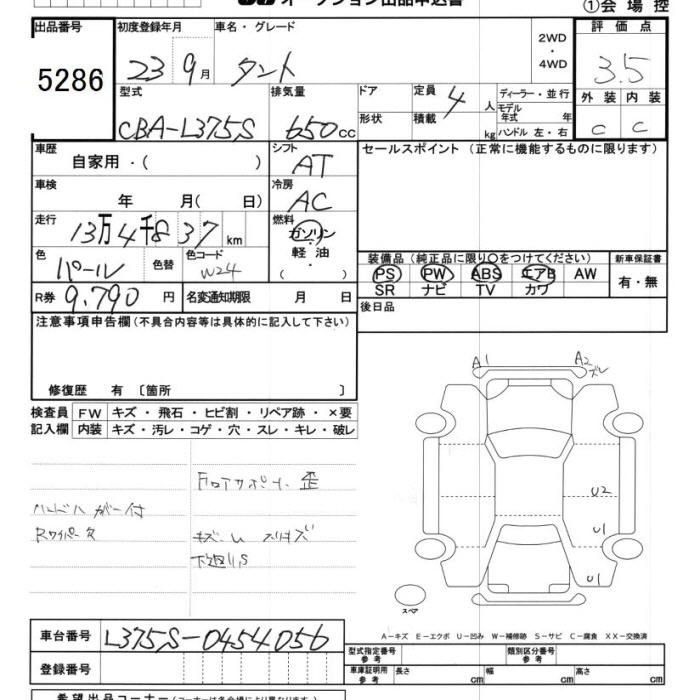 オークション出品申込書
①会場控
出品番号 初度登録年月 車名・グレード 2WD・4WD 評価点
5286 23 9月 タント 3.5
型式 排気量 ドア 定員 4人 ディーラー・並行 外装 内装
CBA-L375S 650cc 形状 積載 kg モデル年式 年 ハンドル 左・右 C C
車歴 自家用・( ) シフト AT セールスポイント(正常に機能するものに限ります)
車検 年 月( 日) 冷房 AC
走行 13万4千8 37km 燃料 ガソリン・軽油・( )
色 パール 色替 色コード W24
装備品(純正品に限り○をつけてください) 新車保証書
PS PW ABS エアB AW 有・無
SR ナビ TV カワ
R券 9,790円 名変通知期限 月 日
後日品
注意事項申告欄(不具合内容等は具体的に記入して下さい)
修復歴 有 〔箇所 〕
検査員 FW キズ・飛石・ヒビ割・リペア跡・×要
記入欄 内装 キズ・汚レ・コゲ・穴・スレ・キレ・破レ
A1 A2 ズレ
フロアサポート 歪
ハンドルカバー付
Rワイパー欠
キズ U スリキズ
下廻りS
U2
U1
U1
スペア
A-キズ E-エクボ U-凹み W-補修跡 S-サビ C-腐食 XX-交換済
車台番号 L375S-0454056
型式指定番号 参考 類別区分番号 参考
登録番号
車庫証明用 参考 長さ cm 幅 cm 高さ cm
希望出品コーナー(コーナーは各会場により異なります)